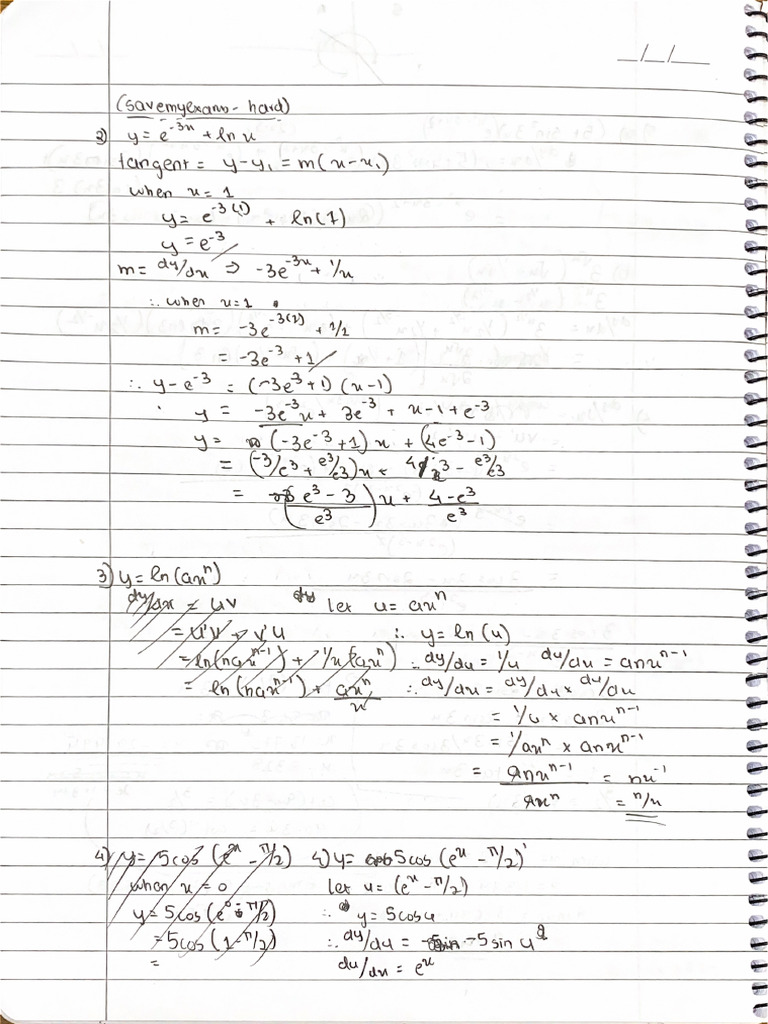 _/_/_
(savemyexams - hard)
2) y = e^-3x + ln x
tangent = y-y₁ = m(x-x₁)
when x = 1
y = e^-3(1) + ln(1)
y = e^-3
m = dy/dx ⇒ -3e^-3x + 1/x
∴ when x=1
m = -3e^-3(1) + 1/1
= -3e^-3 + 1
∴ y - e^-3 = (-3e^-3 + 1)(x-1)
y = -3e^-3 x + 3e^-3 + x - 1 + e^-3
y = (-3e^-3 + 1)x + (4e^-3 - 1)
= (-3/e^3 + e^3/e^3)x + 4/e^3 - e^3/e^3
= (e^3 - 3 / e^3)x + 4-e^3 / e^3
3) y = ln(ax^n)
dy/dx = uv let u = ax^n
= u'v + v'u ∴ y = ln(u)
= ln(nax^n-1) + 1/x(ax^n) ∴ dy/du = 1/u du/dx = anx^n-1
= ln(nax^n-1) + ax^n/x ∴ dy/dx = dy/du × du/dx
= 1/u × anx^n-1
= 1/ax^n × anx^n-1
= anx^n-1 / ax^n = nx^-1
= n/x
4) y = 5cos(e^x - π/2) 4) y = 5cos(e^x - π/2)
when x = 0 let u = (e^x - π/2)
y = 5cos(e^0 - π/2) ∴ y = 5cosu
= 5cos(1 - π/2) ∴ dy/du = -5 sin u
= du/dx = e^x